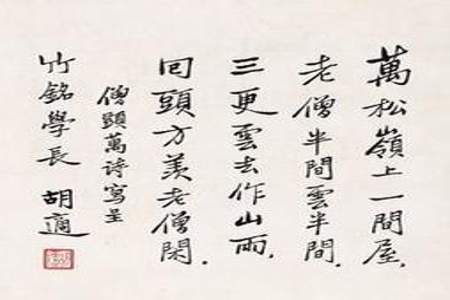 萬松嶺上一間屋.
老僧半間雲半間.
三更雲去作山雨.
回頭方羨老僧閑.
僧顯萬詩寫呈
竹銘學長 胡適